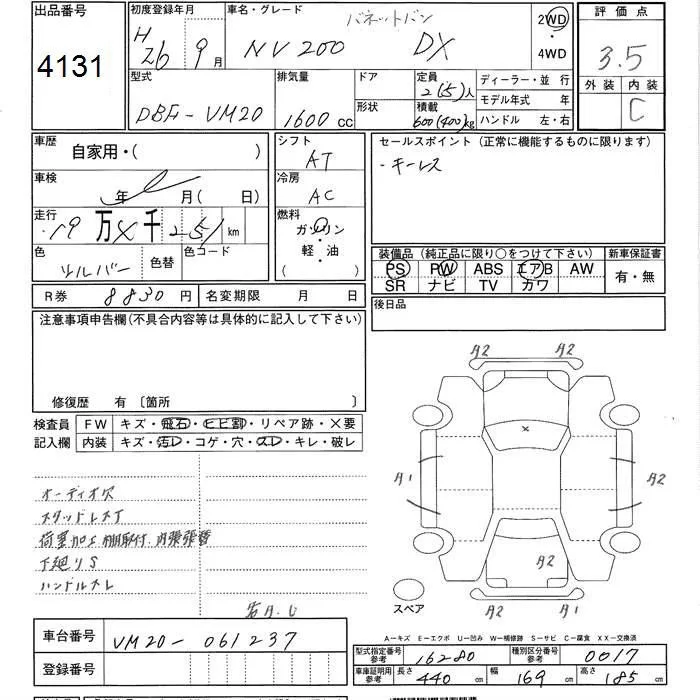 出品番号
4131
初度登録年月
H 26 9月
車名・グレード
バネットバン
NV200 DX
2WD
・
4WD
評価点
3.5
外装 内装
C
型式
DBF-VM20
排気量
1600 CC
ドア
形状
定員
2(5)人
積載
600(400)kg
ディーラー・並行
モデル年式 年
ハンドル 左・右
車歴
自家用・( )
車検
年 月( 日)
走行
19万 千 251 km
色
シルバー
色替
色コード
シフト
AT
冷房
AC
燃料
ガソリン
・
軽・油
( )
セールスポイント(正常に機能するものに限ります)
・キーレス
装備品(純正品に限り○をつけて下さい)
新車保証書
PS PW ABS エアB AW
SR ナビ TV カワ
有・無
R券 8830円
名変期限 月 日
後日品
注意事項申告欄(不具合内容等は具体的に記入して下さい)
修復歴 有〔箇所 〕
検査員
記入欄
FW キズ・飛石・ヒビ割・リペア跡・×要
内装 キズ・汚レ・コゲ・穴・スレ・キレ・破レ
オーディオ欠
スタッドレス丁
荷室加工 棚取付 内張張替
下廻りS
ハンドルスレ
A2 A2
×
A1 A2
A2
A2 A1
スペア
A-キズ E-エクボ U-凹み W-補修跡 S-サビ C-腐食 XX-交換済
車台番号
VM20-061237
登録番号
型式指定番号
参考
16280
種別区分番号
参考
0017
車庫証明用
参考
長さ
440 cm
幅
169 cm
高さ
185 cm